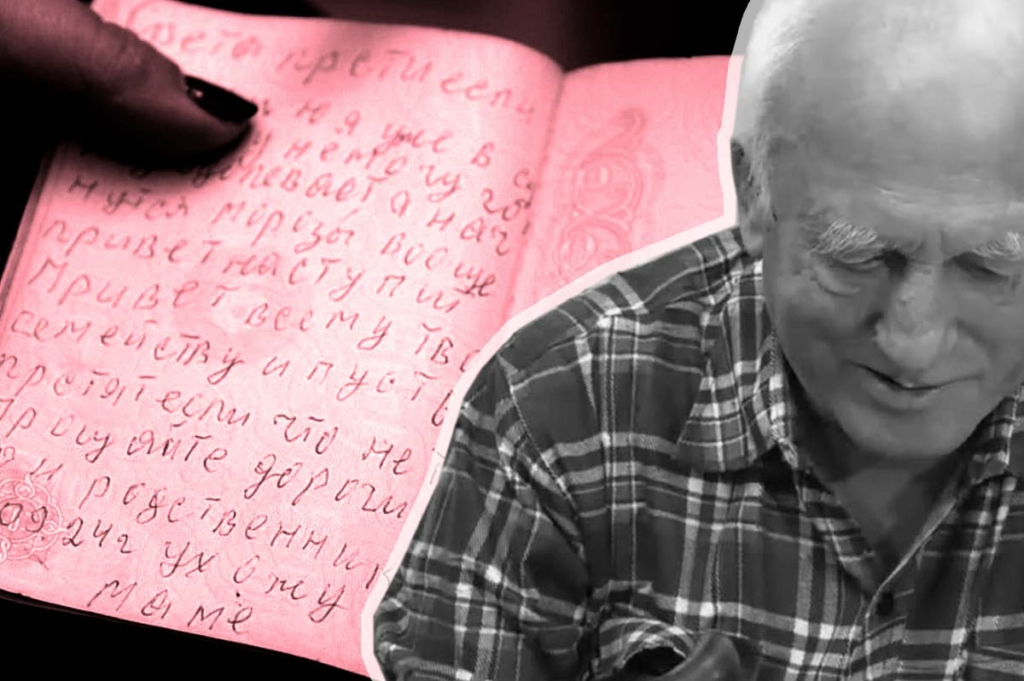 Света прстиесли
я уже в
немогу
девает а нач
нутся морозы вообще
приветнаступит
Привет всему тво
семейству и пусть
прстятесли что не
Прощайте дороги
и родственни
09.24г ухожу
маме